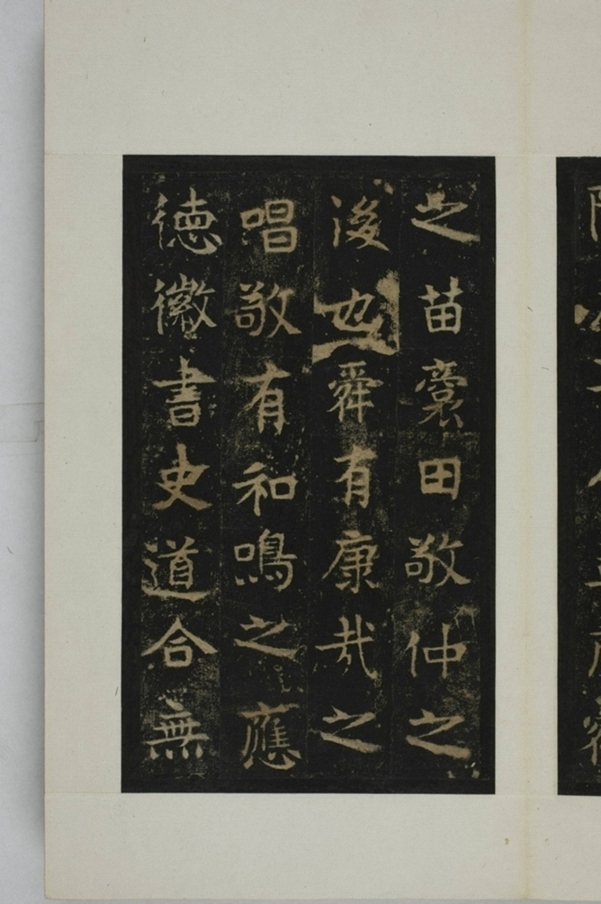 之苗裔田敬仲之
後也舜有康哉之
唱敬有和鳴之應
徳徽書史道合無